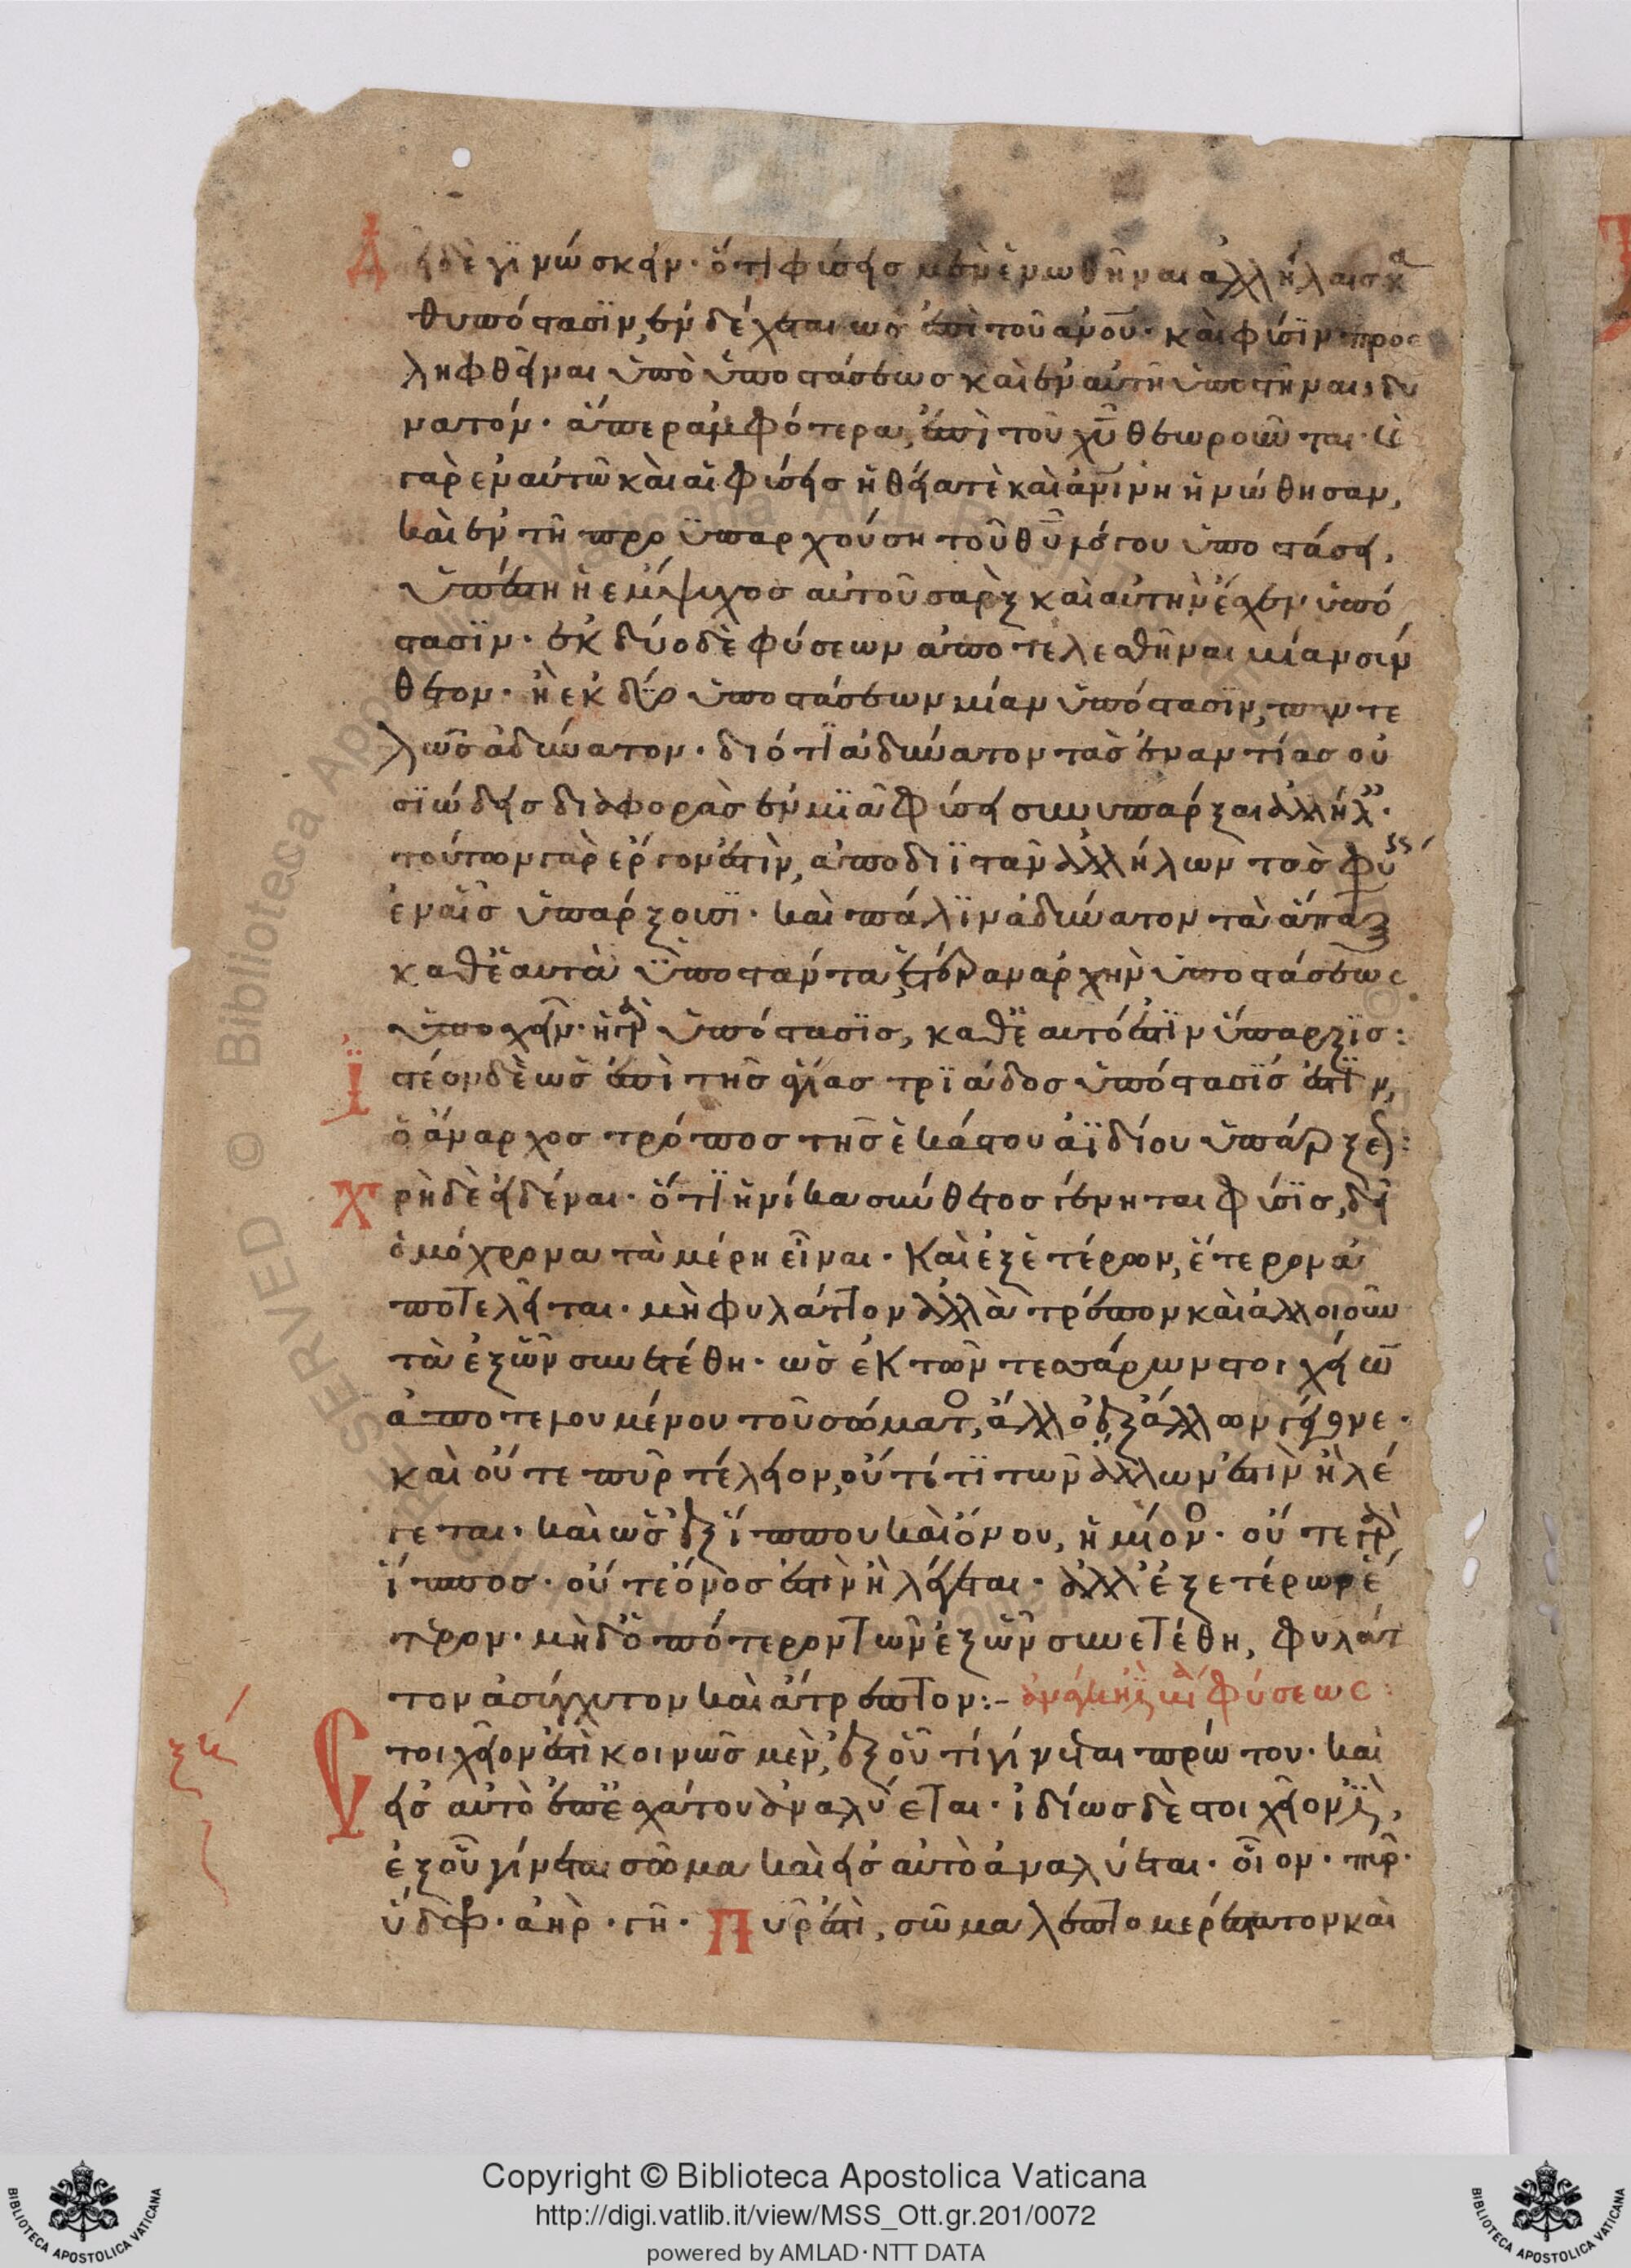 Δεῖ δὲ γινώσκειν· ὅτι φύσεις μὲν ἑνωθῆναι ἀλλήλαις κα
θυπόστασϊν, ἐνδέχεται ὡς ἐπὶ τοῦ ἀνου· καὶ φύσϊν προσ
ληφθῆναι ὑπὸ ὑποστάσεως καὶ ἐν αὐτῆ ὑποστῆναι, δυ
νατόν· ἅπερ ἀμφότερα, ἐπὶ τοῦ χυ θεωροῦνται·
γὰρ ἐν αὐτῶ καὶ αἱ φύσεις ἡ θεία τὲ καὶ ἀνίνη ἡνώθησαν,
καὶ ἐν τῆ προϋπαρχούση τοῦ θυ λόγου ὑποστάσει,
ὑπέστη ἡ ἔμψυχος αὐτοῦ σαρξ καὶ αὐτὴν ἔσχεν ὑπό
στασϊν· ἐκ δύο δὲ φύσεων ἀποτελεσθῆναι μίαν σύν
θετον· ἢ ἐκ δύο ὑποστάσεων μίαν ὑπόστασϊν, παντε
λῶς ἀδύνατον· διότι ἀδύνατον τὰς ἐναντίας οὐ
σϊώδεις διαφορὰς ἐν μϊᾶ φύσει συνυπάρξαι ἀλλήλων·
τούτων γὰρ ἔργον ἐστὶν, ἀποδιϊστᾶν ἀλλήλων τὰς φύσεις
ἐν αἷς ὑπάρξουσϊ· καὶ πάλϊν ἀδύνατον τὰ ἅπαξ
καθ' ἑαυτὰ ὑποστάντα, ἑτέραν ἀρχὴν ὑποστάσεως
ὑποσχεῖν· ἡ γὰρ ὑπόστασϊς, καθ' ἑαυτό ἐστϊν ὕπαρξϊς:
Ϊστέον δὲ ὡς ἐπὶ τῆς ἁγίας τρϊάδος ὑπόστασϊς ἐστϊν,
ὁ ἄναρχος τρόπος τῆς ἑκάστου ἀϊδίου ὑπάρξεως:
Χρὴ δὲ εἰδέναι· ὅτι ἡνίκα σύνθετος γένηται φύσϊς, δεῖ
ὁμόχρονα τὰ μέρη εἶναι· Καὶ ἐξ ἑτέρων, ἕτερον ἀ
ποτελεῖται· μὴ φυλάττον ἀλλὰ τρέπον καὶ ἀλλοιοῦν
τὰ ἐξ ὧν συνετέθη· ὡς ἐκ τῶν τεσσάρων στοιχείων
ἀποτελουμένου τοῦ σώματος, ἄλλο ἐξ ἄλλων γέγονε·
καὶ οὔτε πῦρ τέλειον, οὔτέ τϊ τῶν ἄλλων ἐστὶν ἢ λέ
γεται· καὶ ὡς ἐξ ἵππου καὶ ὄνου, ἡμίονος· οὔτε γὰρ
ἵππος· οὔτε ὄνος ἐστὶν ἢ λέγεται· ἀλλ' ἐξ ἑτέρων ἕ
τερον· μηδ' ὁπότερον τῶν ἐξ ὧν συνετέθη, φυλάτ
τον ἀσύγχυτον καὶ ἄτρεπτον:-
Στοιχεῖον ἐστὶ κοινῶς μὲν, ἐξ οὗ τί γίνεται πρώτον· καὶ
εἰς αὐτὸ ἐπ' ἔσχατον ἀναλύεται· ἰδίως δὲ στοιχεῖον ἐστὶ,
ἐξ οὗ γίνεται σῶμα καὶ εἰς αὐτὸ ἀναλύεται· οἷον· πῦρ·
ὕδωρ· ἀὴρ· γῆ· Πῦρ ἐστὶ, σῶμα λεπτομερέστατον καὶ